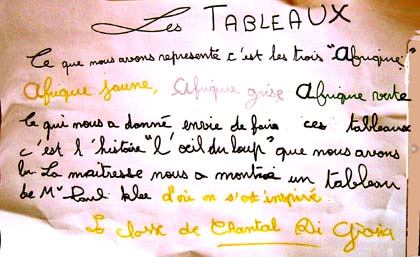 Les TABLEAUX
Ce que nous avons representé c'est les trois "Afrique":
Afrique jaune, Afrique grise Afrique verte
Ce qui nous a donné envie de faire ces tableaux
c'est l'histoire "l'oeil du loup" que nous avons
lu. La maîtresse nous a montrée un tableau
de Mr Paul klee d'où on s'est inspiré.
La classe de Chantal Di Gioia